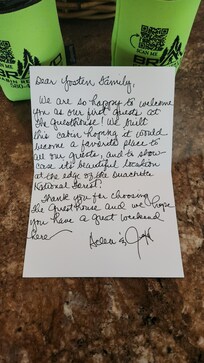 SCAN ME
BR
CABIN REN
580-212-
SCAN ME
BR
Dear Yosten Family,
We are so happy to welcome
you as our first guests at
the guesthouse! We built
this cabin hoping it would
become a favorite place to
all our guests, and to show
case its beautiful location
at the edge of the Ouachita
National Forest.
Thank you for choosing
the Guesthouse and we hope
you have a great weekend
here